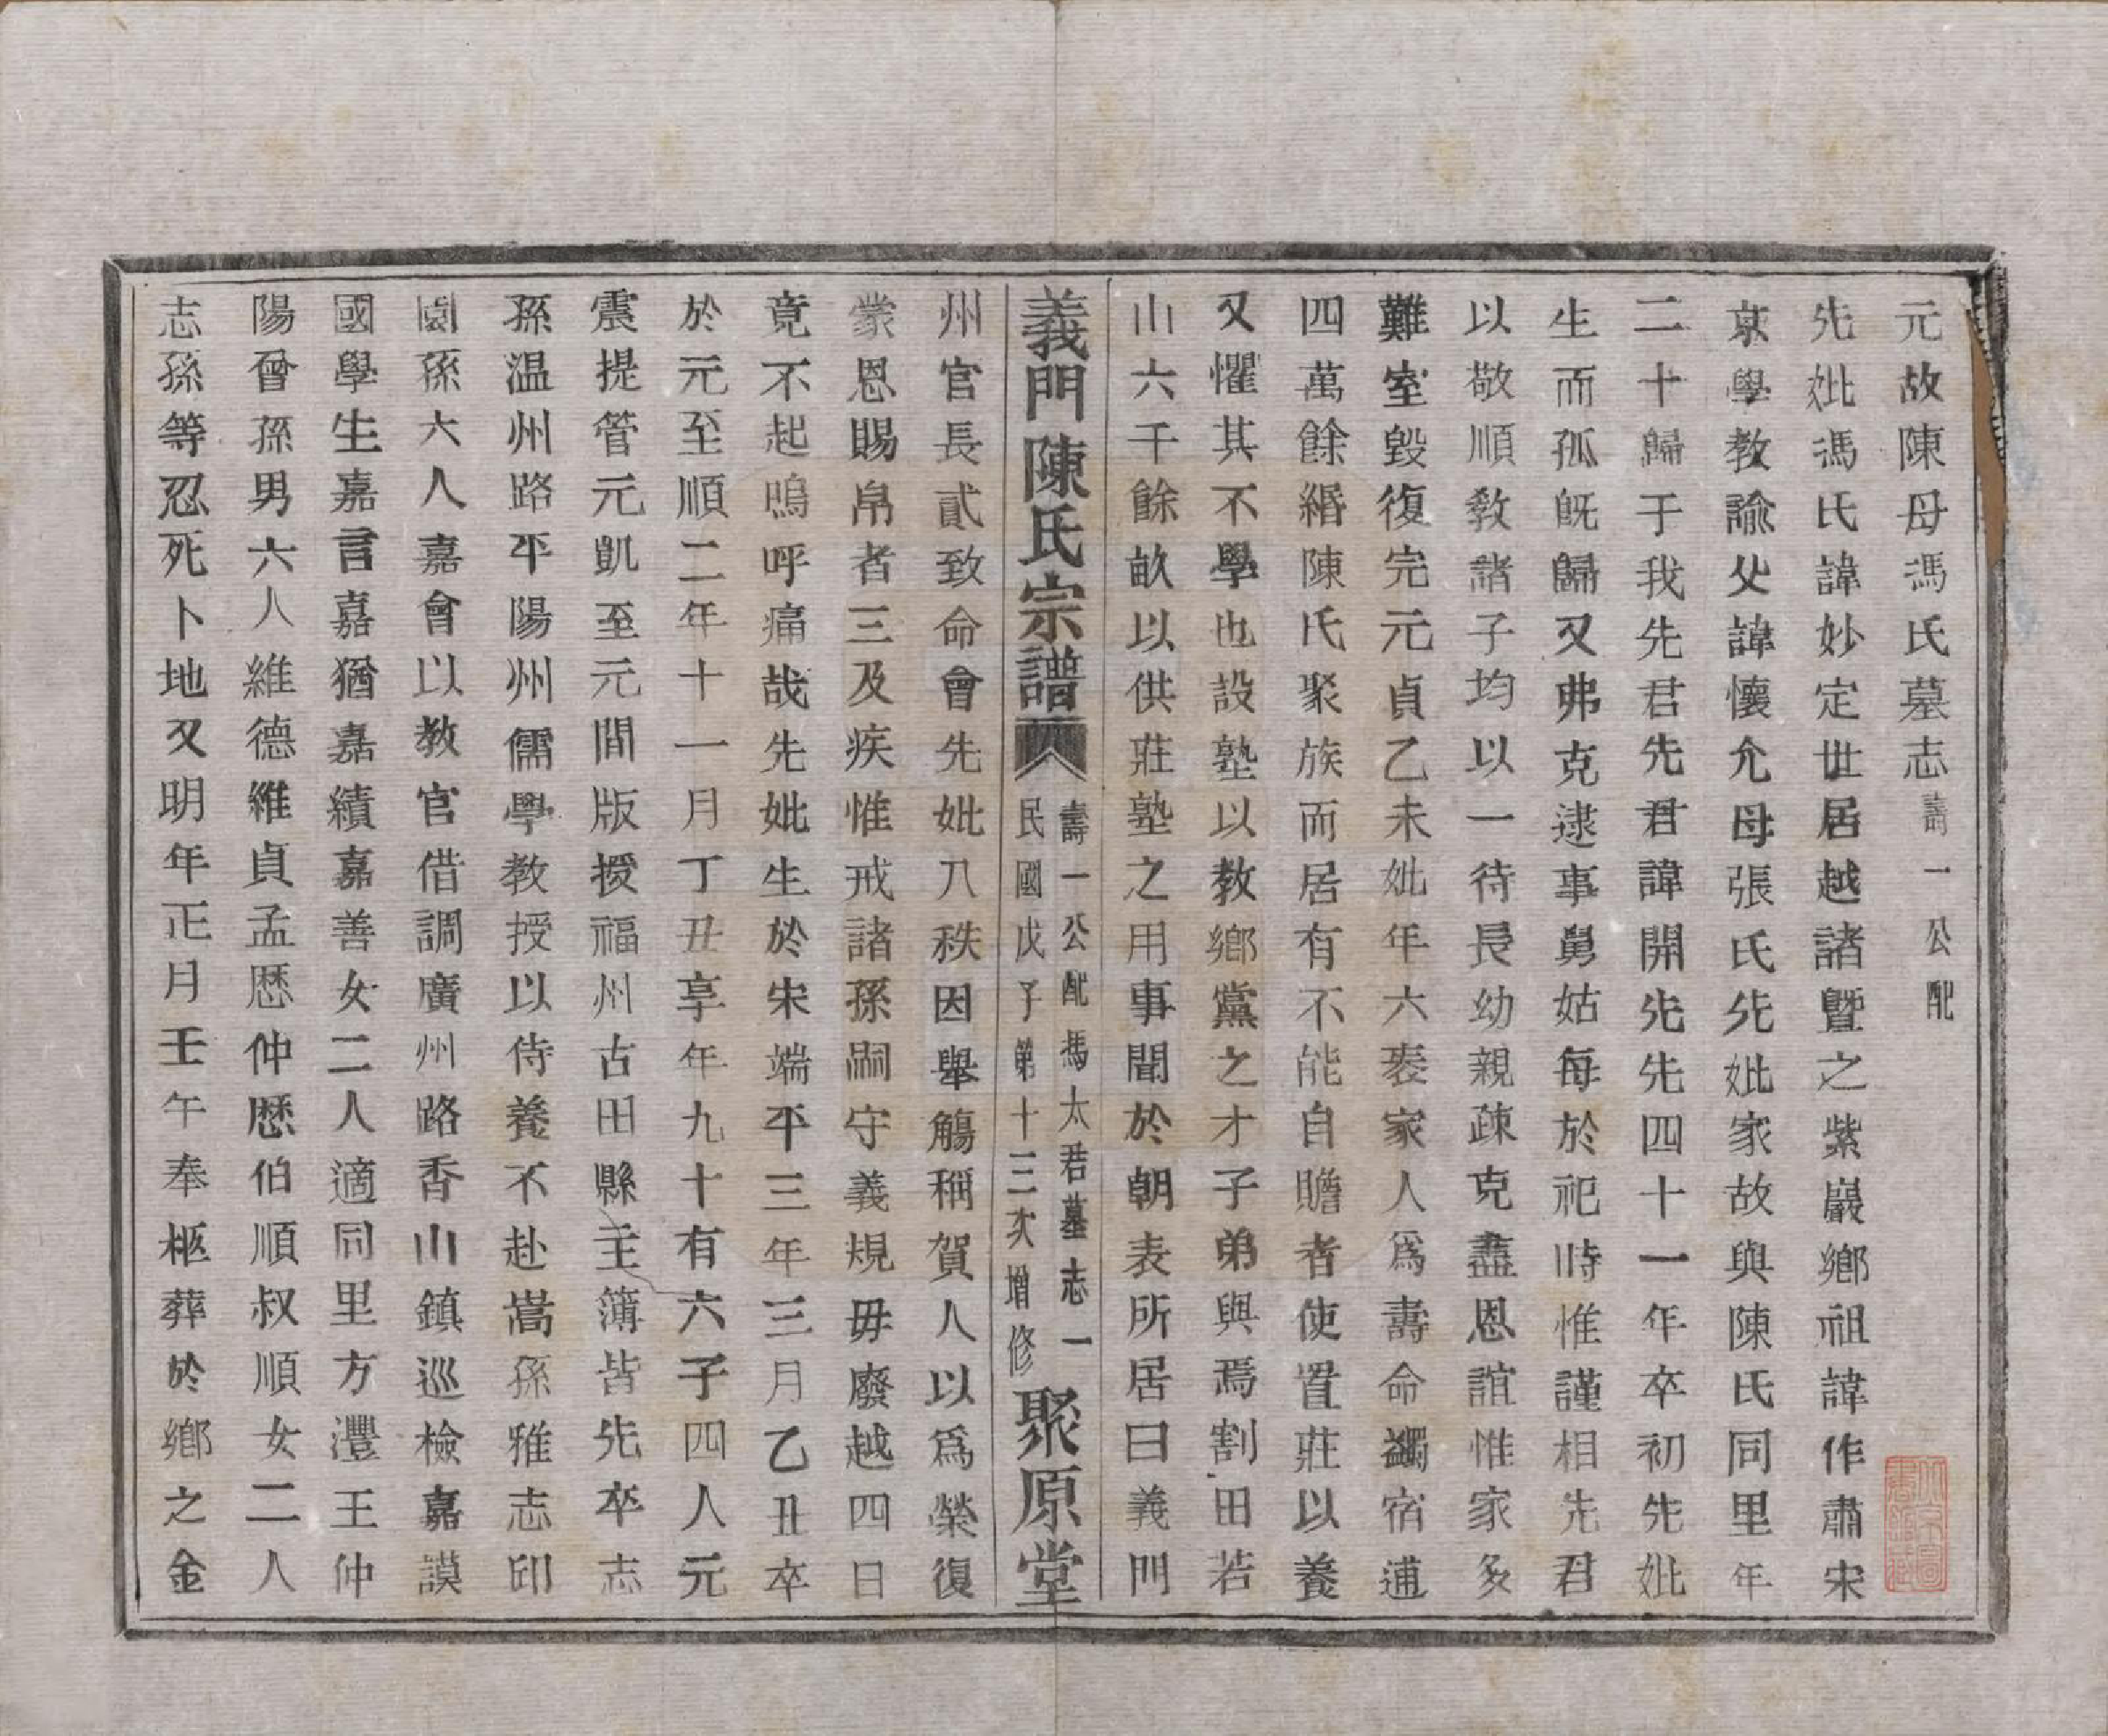 元故陳母馮氏墓志壽一公配
先妣馮氏諱妙定世居越諸暨之紫巖鄉祖諱作肅宋
京學教諭父諱懷允母張氏先妣家故與陳氏同里年
二十歸于我先君先君諱開先先四十一年卒初先妣
生而孤旣歸又弗克逮事舅姑每於祀時惟謹相先君
以敬順敎諸子均以一待長幼親疎克盡恩誼惟家多
難室毀復完元貞乙未妣年六袠家人爲壽命蠲宿逋
四萬餘緡陳氏聚族而居有不能自贍者使置莊以養
又懼其不學也設塾以教鄉黨之才子弟與焉割田若
山六千餘畝以供莊塾之用事聞於朝表所居曰義門
義門陳氏宗譜
壽一公配馮太君墓志一
民國戊子第十三次增修
聚原堂
州官長貳致命會先妣八秩因舉觴稱賀人以爲榮復
蒙恩賜帛者三及疾惟戒諸孫嗣守義規毋廢越四日
竟不起嗚呼痛哉先妣生於宋端平三年三月乙丑卒
於元至順二年十一月丁丑享年九十有六子四人元
震提管元凱至元間版授福州古田縣主簿皆先卒志
孫温州路平陽州儒學教授以侍養不赴嵩孫雅志邱
園孫六人嘉會以教官借調廣州路香山鎮巡檢嘉謨
國學生嘉言嘉猶嘉績嘉善女二人適同里方灃王仲
陽曾孫男六人維德維貞孟歷仲歷伯順叔順女二人
志孫等忍死卜地又明年正月壬午奉柩葬於鄉之金